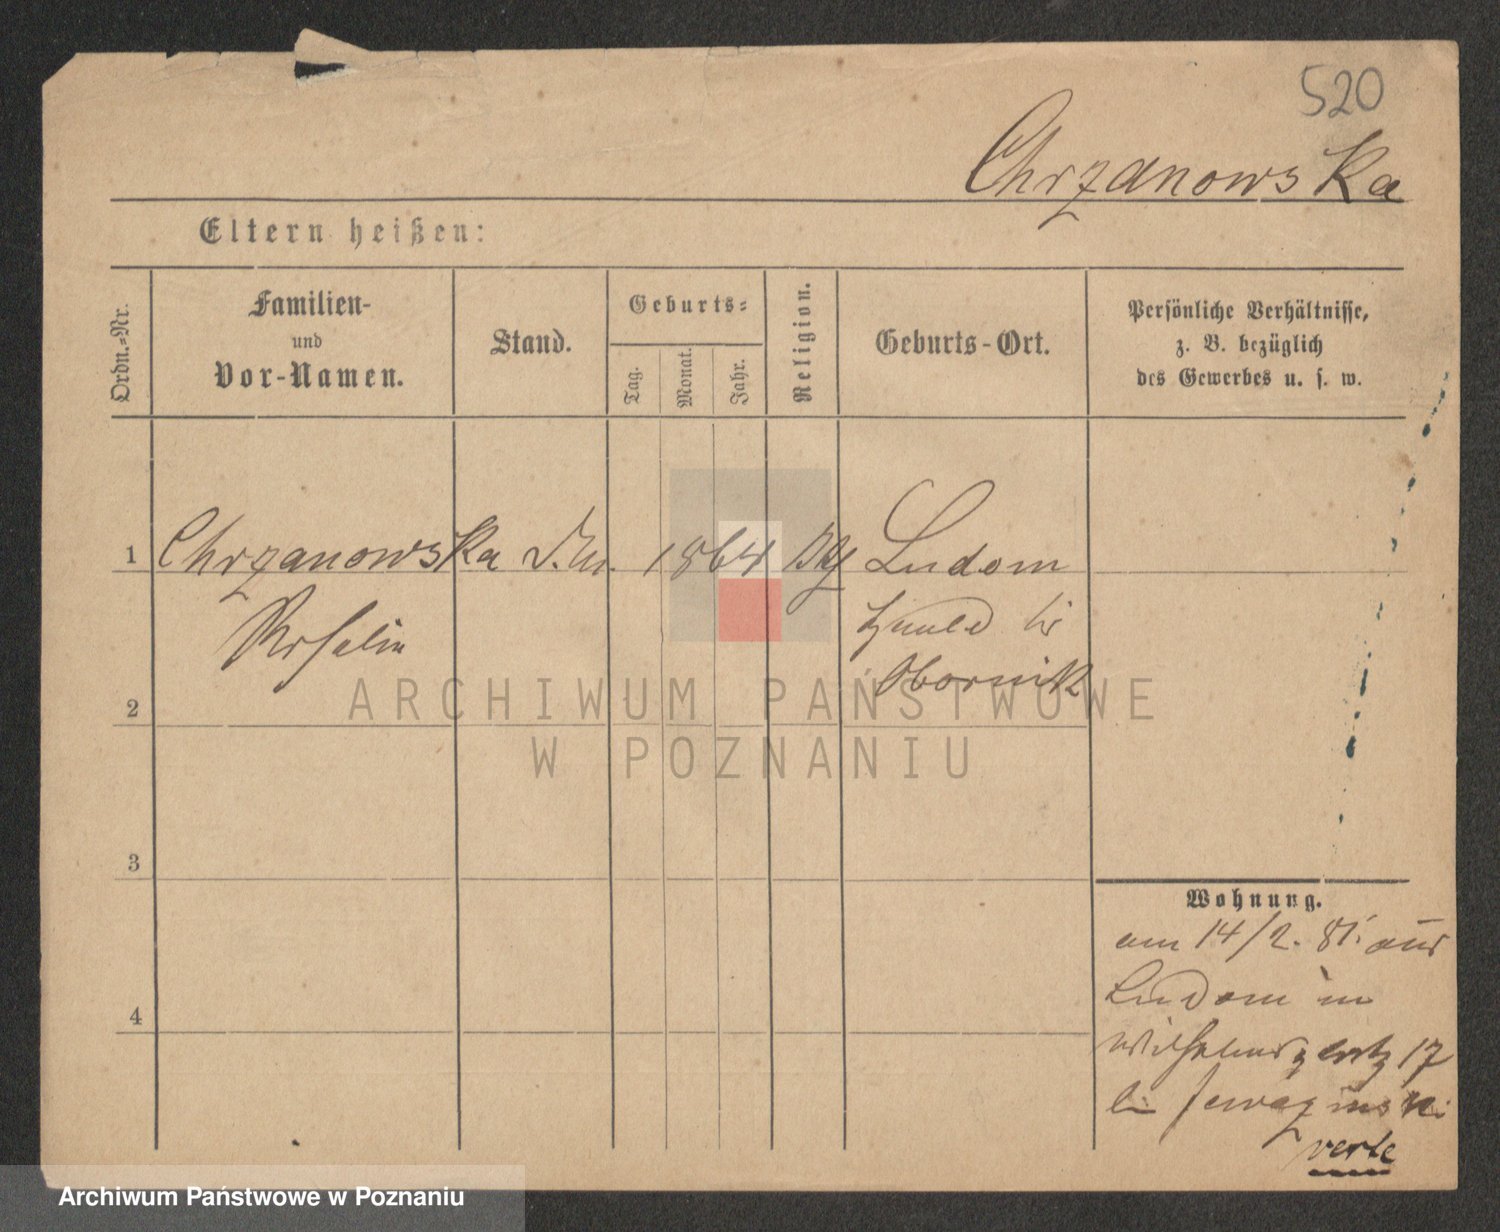 520
Chrzanowska
Eltern heißen:
Ordn.-Nr.
Familien-
und
Vor-Namen.
Stand.
Geburts-
Tag.
Monat.
Jahr.
Religion.
Geburts-Ort.
Persönliche Verhältnisse,
z. B. bezüglich
des Gewerbes u. s. w.
1 Chrzanowska 1864 Ludom
Rosalie
Obornik
2
3
4
Wohnung.
am 14/2. 81. aus
Ludom in
Wilhelmsplatz 17
bei
verte
ARCHIWUM PAŃSTWOWE
W POZNANIU
Archiwum Państwowe w Poznaniu